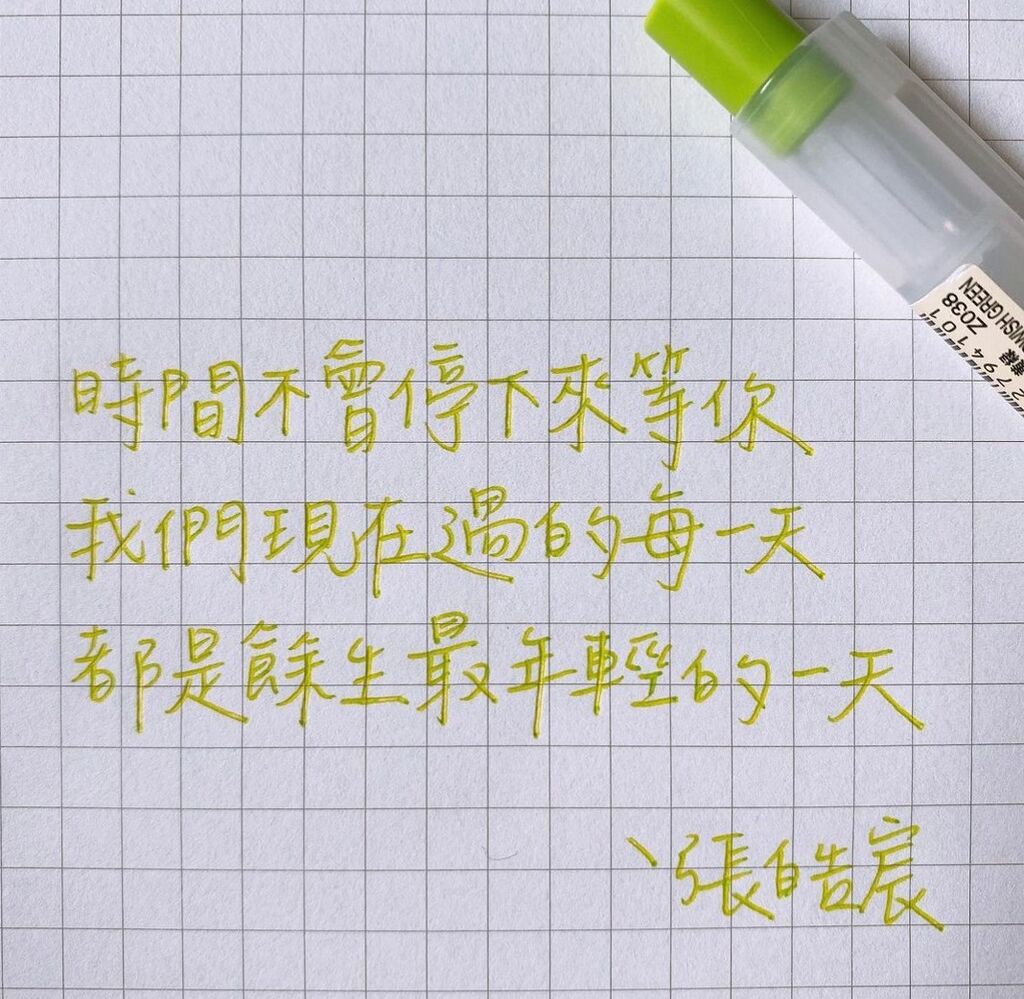 時間不會停下來等你
我們現在過的每一天
都是餘生最年輕的一天
﹨張皓宸
WISH GREEN
Z038
4101
279